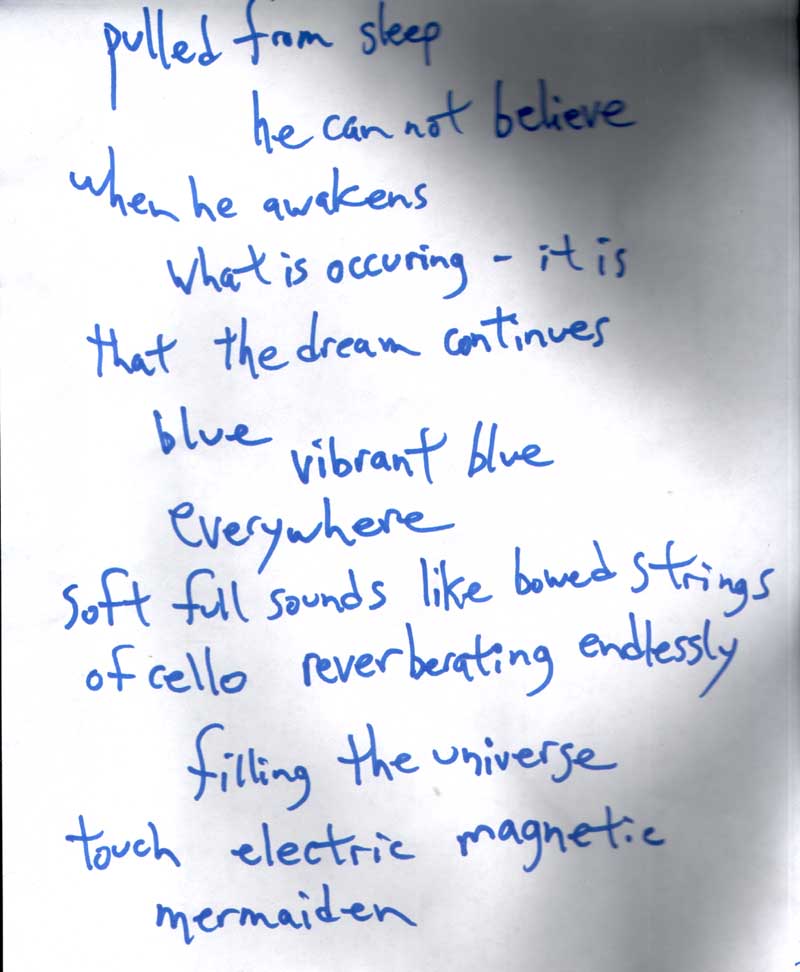 pulled from sleep
he can not believe
when he awakens
what is occuring - it is
that the dream continues
blue vibrant blue
everywhere
soft full sounds like bowed strings
of cello reverberating endlessly
filling the universe
touch electric magnetic
mermaiden